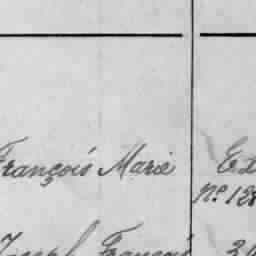 François Marie
Nº 12
Joseph François